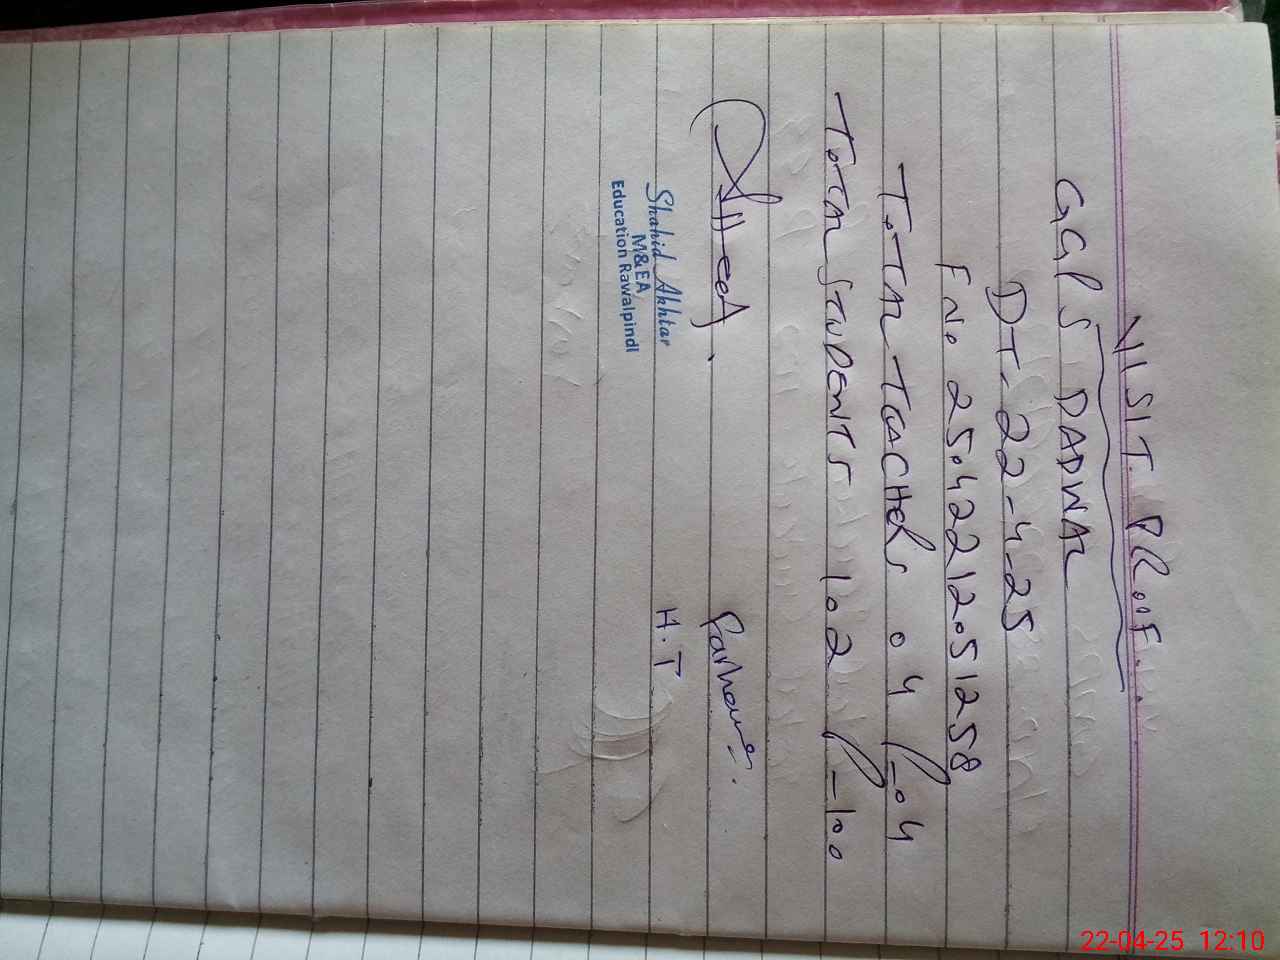 VISIT. PROOF...
GGPS DADWAL
DT. 22-4-25
F No 25042212051258
TOTAL TEACHERS 04 P-04
TOTAL STUDENTS 102 P-100
Farhana
H.T
Shahid Akhtar
M&EA
Education Rawalpindi
22-04-25 12:10